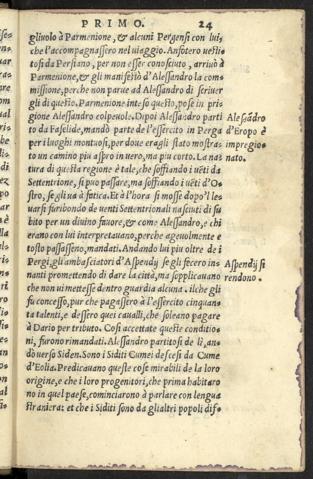 PRIMO. 24
gliuolo à Parmenione, & alcuni Pergensi con lui,
che l'accompagnassero nel uiaggio. Anfotero uesti
tosi da Persiano, per non esser conosciuto, arriuò à
Parmenione, & gli manifestò d'Alessandro la com
missione, perche non parue ad Alessandro di scriuer
gli di questo. Parmenione inteso questo, pose in pri
gione Alessandro colpeuole. Dipoi Alessandro parti
da Faselide, mandò parte de l'essercito in Perga
per i luoghi montuosi, per doue era gli stato mostra-
to un camino piu aspro in uero, ma piu corto. La na
tura di questa regione è tale, che soffiando i uẽti da
Settentrione, si puo passare, ma soffiando i uẽti d'O
stro, se gli ua à fatica. Et à l'hora si mosse dopo'l le
uarsi furibondo de uenti Settentrionali nasciuti di su
bito per un diuino fauore, & come Alessandro, e chi
erano con lui interpretauano, perche ageuolmente e
tosto passasseno, mandati. Andando lui piu oltre de i
Pergi, gli ambasciatori d'Aspendij se gli fecero in-
nanti promettendo di dare la città, ma supplicauano
che non ui mettesse dentro guardia alcuna. ilche gli
fu concesso, pur che pagassero à l'essercito cinquan-
ta talenti, e dessero quei caualli, che soleano pagare
à Dario per tributo. Cosi accettate queste conditio-
ni, furono rimandati. Alessandro partitosi de li, an-
dò uerso Siden. Sono i Siditi Cumei descesi da Cume
d'Eolia. Predicauano queste cose mirabili de la loro
origine, e che i loro progenitori, che prima habitaro
no in quel paese, cominciarono à parlare con lengua
straniera: et che i Siditi sono da gli altri popoli dif-
Alesãdro
d'Eropo è
impregio-
nato.
Aspendij si
rendono.